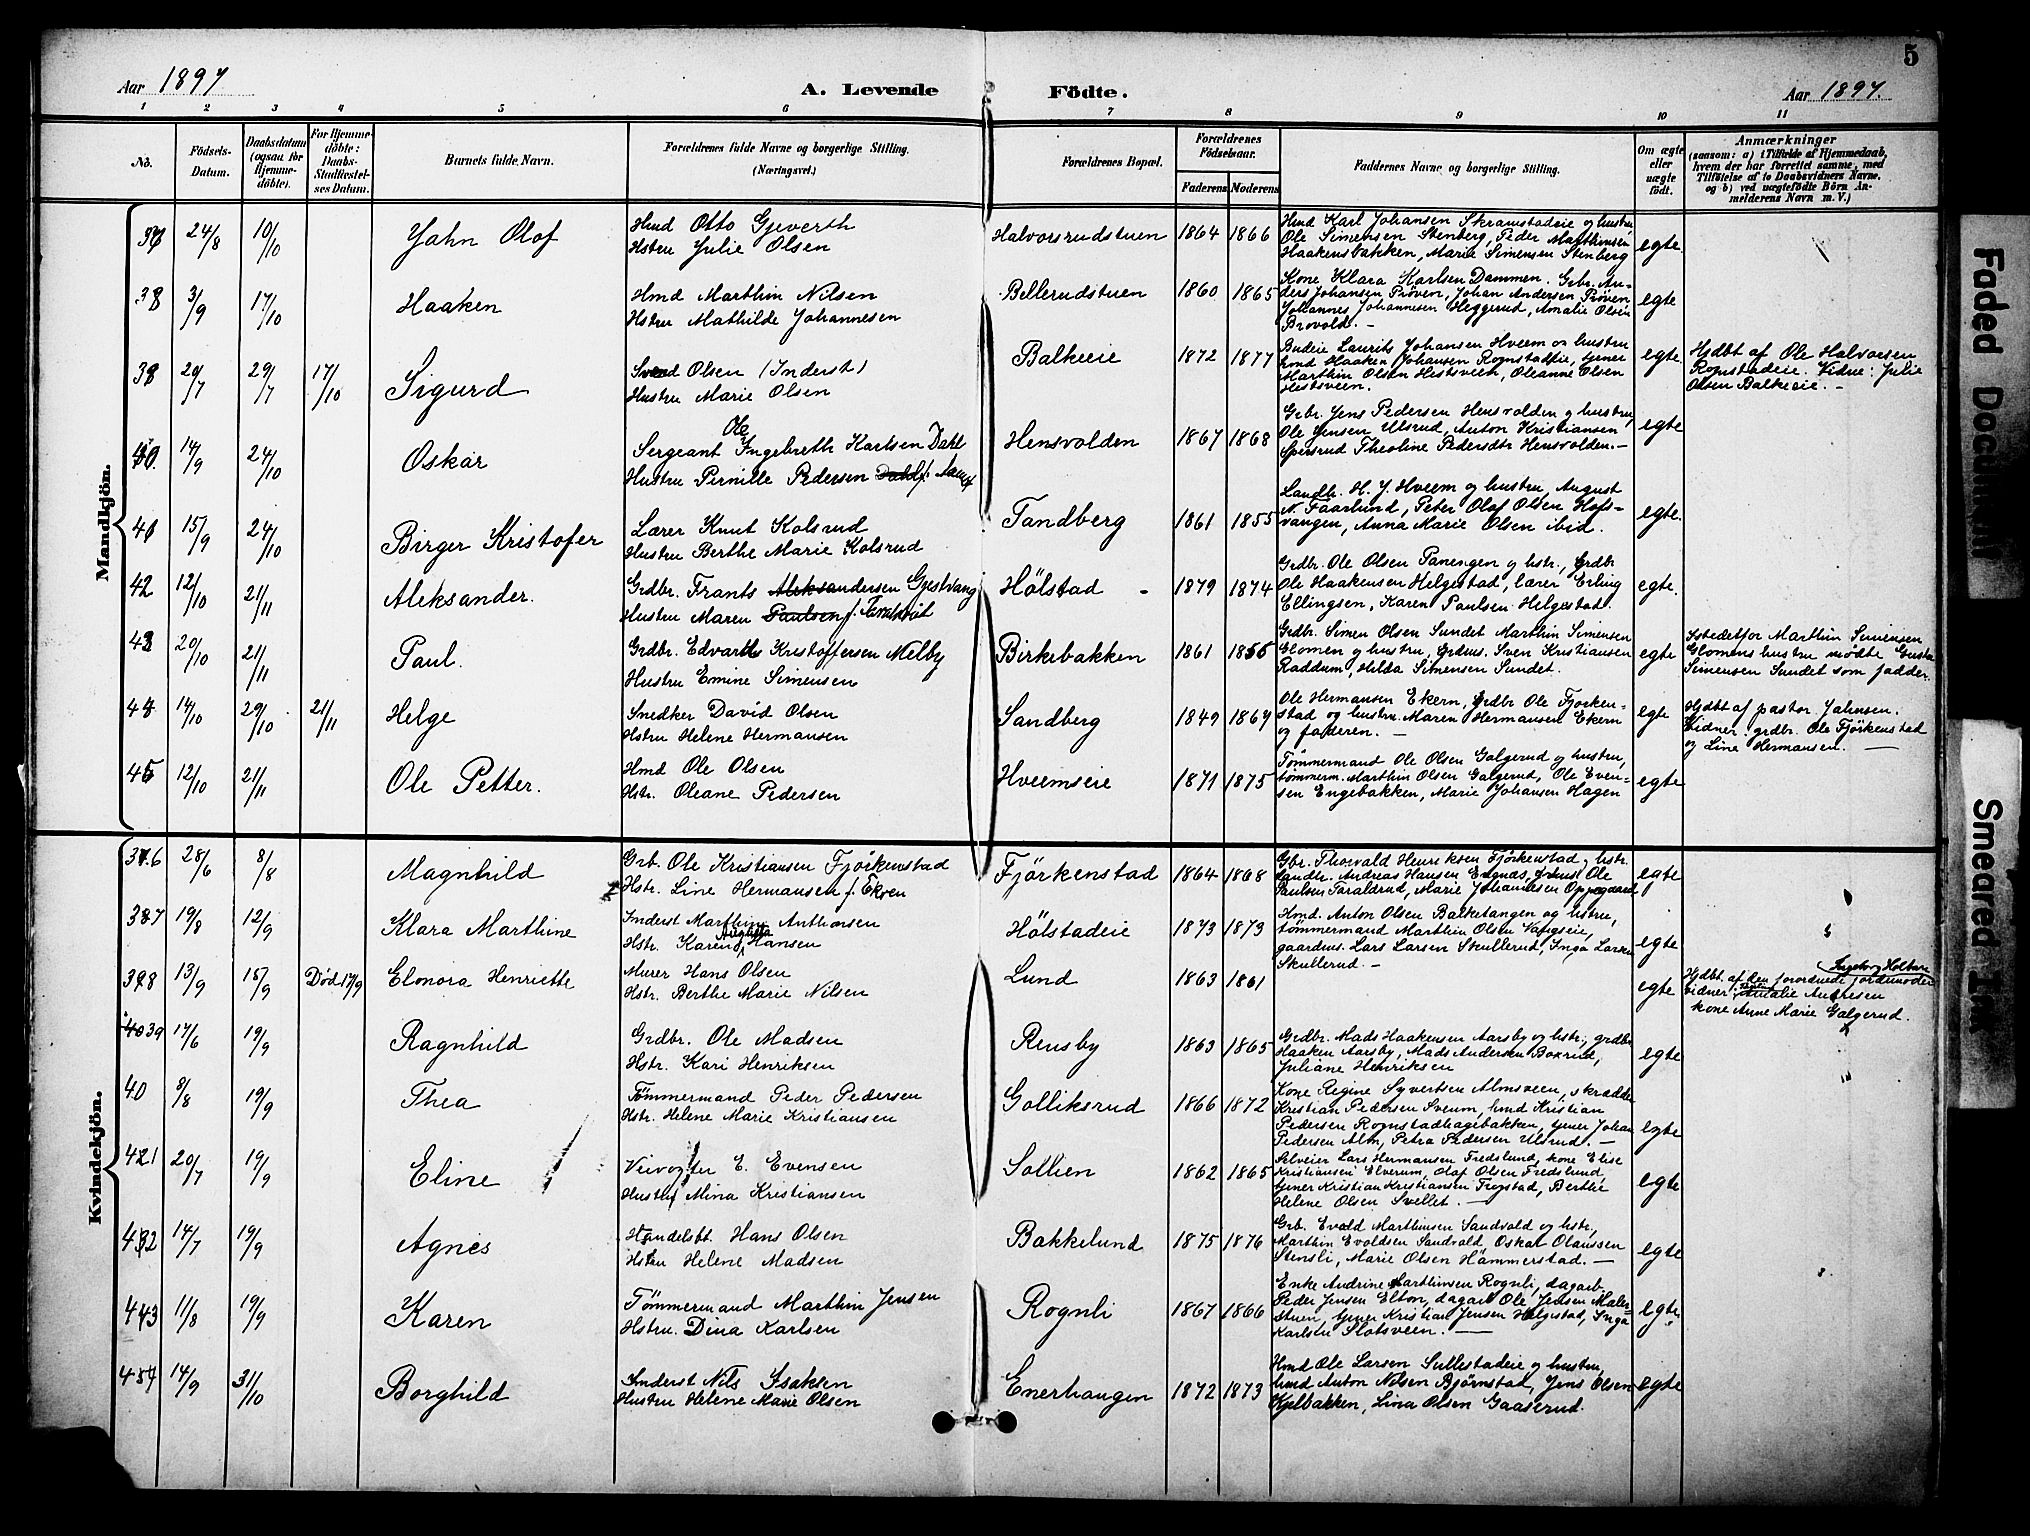 5
Aar 1897
A. Levende
Födte.
Aar 1897.
1 2 3 4 5 6 7 8 9 10 11
No.
Födsels-
Datum.
Daabsdatum
(ogsaa for
Hjemme-
döbte).
For Hjemme-
döbte:
Daabs-
Stadfæstel-
ses Datum.
Barnets fulde Navn.
Forældrenes fulde Navne og borgerlige Stilling.
(Næringsvei.)
Forældrenes Bopæl.
Forældrenes
Födselsaar.
Faderens Moderens
Faddernes Navne og borgerlige Stilling.
Om ægte
eller
uægte
födt.
Anmærkninger
(saasom: a) i Tilfælde af Hjemmedaab,
hvem der har forrettet samme, med
Tilföielse af to Daabsvidners Navne,
og b) ved uægtefödte Börn An-
melderens Navn m. V.)
Mandkjön.
37 24/8 10/10 Jahn Olof
Hmd Otto Gjeverth
Hstru Julie Olsen
Halvorsrudstuen 1864 1866
Hmd Karl Johansen Skramstadeie og hustru
Ole Simensen Stenberg, Peder Marthinsen
Haakensbakken, Marie Simensen Stenberg
egte.
38 3/9 17/10 Haaken
Hmd Marthin Nilsen
Hstru Mathilde Johannesen
Bellerudstuen 1860 1865
Kone Klara Karlsen Dammen. Grbr. An-
ders Johansen Prøven, Johan Andersen Prøven
Johannes Johannesen Heggerud, Amalie Olsen
Brovold. –
egte
29/7 29/7 17/10 Sigurd
Svend Olsen (Inderst)
Hustru Marie Olsen
Balkeeie 1872 1877
Budeie Laurits Johansen Hveem og hustru
hmd Haaken Johansen Rognstadeie, tjener
Marthin Olsen Hestsveen, Oleanne Olsen
Hestsveen.
egte
Hjdbt af Ole Halvorsen
Rognstadeie. Vidne: Julie
Olsen Balkeeie. –
40. 14/9 24/10 Oskar
Ole
Sergeant Ingebreth Karlsen Dahl
Hustru Pernille Pedersen
Hensvolden 1867 1868
Grbr. Jens Pedersen Hensvolden og hustru,
Ole Jensen Ulsrud, Anton Kristiansen
Spersrud Theoline Pedersdtr Hensvolden. –
egte
41 15/9 24/10 Birger Kristofer
Lærer Knut Kolsrud
Hustru Berthe Marie Kolsrud
Tandberg 1861 1855
Landbr. H. J. Hveem og hustru August
N. Faarlund, Peter Olaf Olsen Hofs-
vangen, Anna Marie Olsen ibid.
egte.
42 12/10 21/11 Aleksander.
Grdbr. Frants Aleksandersen Gjestvang
Hustru Maren Paulsen f.
Hölstad - 1879 1874
Grdbr. Ole Olsen Panengen og hstr., Grdbr
Ole Haakensen Helgestad, lærer Erling
Ellingsen, Karen Paulsen Helgestad.
egte.
43 20/10 21/11 Paul.
Grdbr. Edvart Kristoffersen Melby
Hustru Emine Simensen
Birkebakken 1861
Grdbr. Simen Olsen Sundet Marthin Simensen
Glomen og hustru, Grdus. Sven Kristiansen
Raddum, Helda Simensen Sundet.
egte
Istedetfor Marthin Simensen
Glomens hustru mödte Gusta
Simensen Sundet som fadder.
44 14/10 29/10 21/11 Helge
Snedker David Olsen
Hstru Helene Hermansen
Sandberg 1849 1864
Ole Hermansen Ekern, Grdbr Ole Fjørken-
stad og hustru. Maren Hermansen Ekern
og faderen. –
egte
Hjdbt af pastor Jahnsen.
Vidner: grdbr. Ole Fjörkenstad
og Line Hermansen. —
45 12/10 21/11 Ole Petter.
Hmd Ole Olsen
Hstr. Oleane Pedersen
Hveemseie 1871 1875
Tømmermand Ole Olsen Galgerud og hustru,
tömmerm. Marthin Olsen Galgerud, Ole Even-
sen Engebakken, Marie Johansen Hagen
egte
Kvindekjön.
36 28/6 8/8 Magnhild
Grb. Ole Kristiansen Fjörkenstad
Hstr. Line Hermansen f. Ekren
Fjörkenstad 1864 1868
Gbr. Thorvald Henriksen Fjørkenstad og hstr.
Landbr. Andreas Hansen Engnæs, Ole
Paulsen Faraldrud, Marie Johannesen Oppegaard
egte
37 19/8 12/9 Klara Marthine
Inderst Marthin Anthonsen
Augusta
Hstr. Karen Hansen
Hölstadeie 1873 1873
Hmd. Anton Olsen Balketangen og hstru,
tömmermand Marthin Olsen
gaardus. Lars Larsen Skullerud, Inga Larsen
Skullerud. –
egte
38 13/9 15/9 Död 17/9 Elonora Henriette
Murer Hans Olsen
Hstr. Berthe Marie Nilsen
Lund 1863 1861
egte
Ingeborg Holtan
Hjdbt af den forordnede jordmoder
Vidner: Amalie Andresen
kone Anne Marie Galgerud.
39 17/6 19/9 Ragnhild
Grdbr. Ole Madsen
Hstr. Kari Henriksen
Rensby 1863 1865
Grdbr. Mads Haakensen Aarsby og hstr., grdbr
Haaken Aarsby, Mads Andersen Boxrud,
Juliane Henriksen
egte
40 8/8 19/9 Thea
Tømmermand Peder Pedersen
Hstr. Helene Marie Kristiansen
Golliksrud 1866 1872
Kone Regine Syvertsen Almsveen, skrædder
Kristian Pedersen Sveum, hmd Kristian
Pedersen Rognstadhagebakken, tjener Johan
Pedersen Alm, Petra Pedersen Ulsrud. –
egte
41 20/7 19/9 Eline
Veivogter E. Evensen
Hustru Mina Kristiansen
Sollien 1862 1865
Selveier Lars Hermansen Fredslund, kone Elise
Kristiansen Elverum, Olaf Olsen Fredslund,
tjener Kristian Kristiansen Frogstad, Berthe
Helene Olsen Svellet. —
egte
42 14/7 19/9 Agnes
Handelsbt. Hans Olsen
Hstru Helene Madsen
Bakkelund 1875 1876
Grb. Evald Marthinsen Sandvold og hstr.,
Marthin Evoldsen Sandvold, Oskar Olaussen
Stensli, Marie Olsen Hammerstad. —
egte
43 11/8 19/9 Karen
Tømmermand Marthin Jensen
Hstru. Dina Karlsen
Rognli 1867 1866
Enke Andrine Marthinsen Rognli, dagarb.
Peder Jensen Elton, dagarb Ole Jensen Maler-
stuen, tjener Kristian Jensen Helgestad, Inga
Karlsen Slotsveen. —
egte
44 14/9 31/10 Borghild
Inderst Nils Isaksen
Hustru Helene Marie Olsen
Enerhaugen 1872 1873
Hmd Ole Larsen Sullestadeie og hustru,
hmd Anton Nilsen Bjørnstad, Jens Olsen
Kjelbakken, Lina Olsen Gaaserud.
egte
Faded Document
Smeared Ink